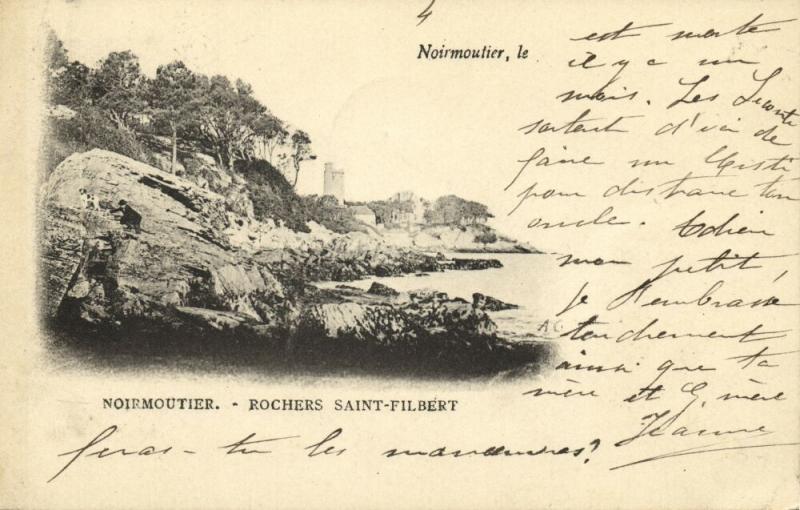 4
Noirmoutier, le
est morte
il y a un
mois. Les Leconte
sortent d'ici de
faire un
pour distraire ton
oncle. Adieu
mon petit,
je t'embrasse
tendrement
ainsi que ta
mère et G. mère
Jeanne
A.C.
NOIRMOUTIER. - ROCHERS SAINT-FILBERT
feras-tu les manœuvres?